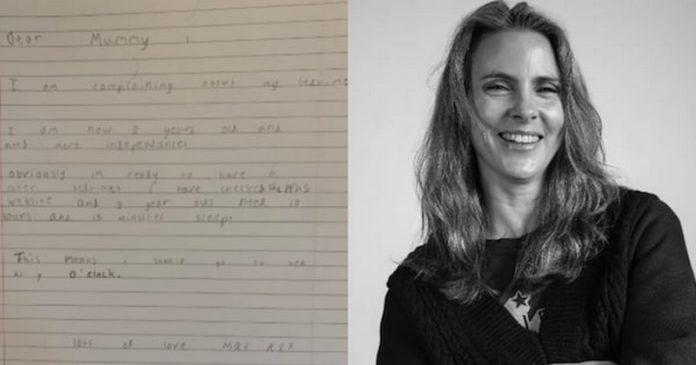 Dear Mummy,
I am complaining about my
I am now 8 years old and
and more
obviously im ready to have a
later I have checked the NHS
website and 8 year olds need 10
hours and 15 minutes sleep.
This means I should go to bed
at O'clock.
lots of love